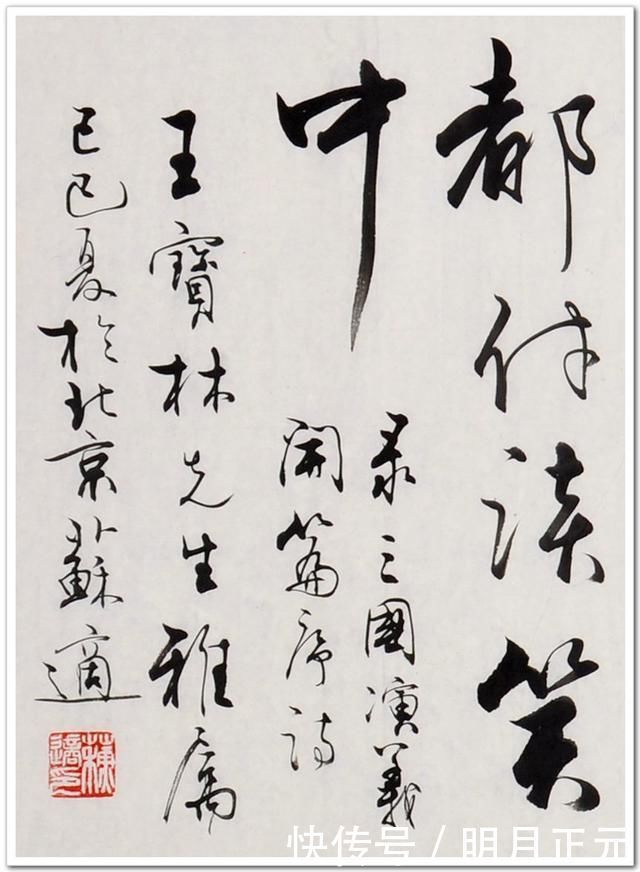 都付谈笑
中
录三國演義
開篇序诗
王寶林先生雅属
己巳夏於北京蘇適
蘇適印
快传号/明月正元